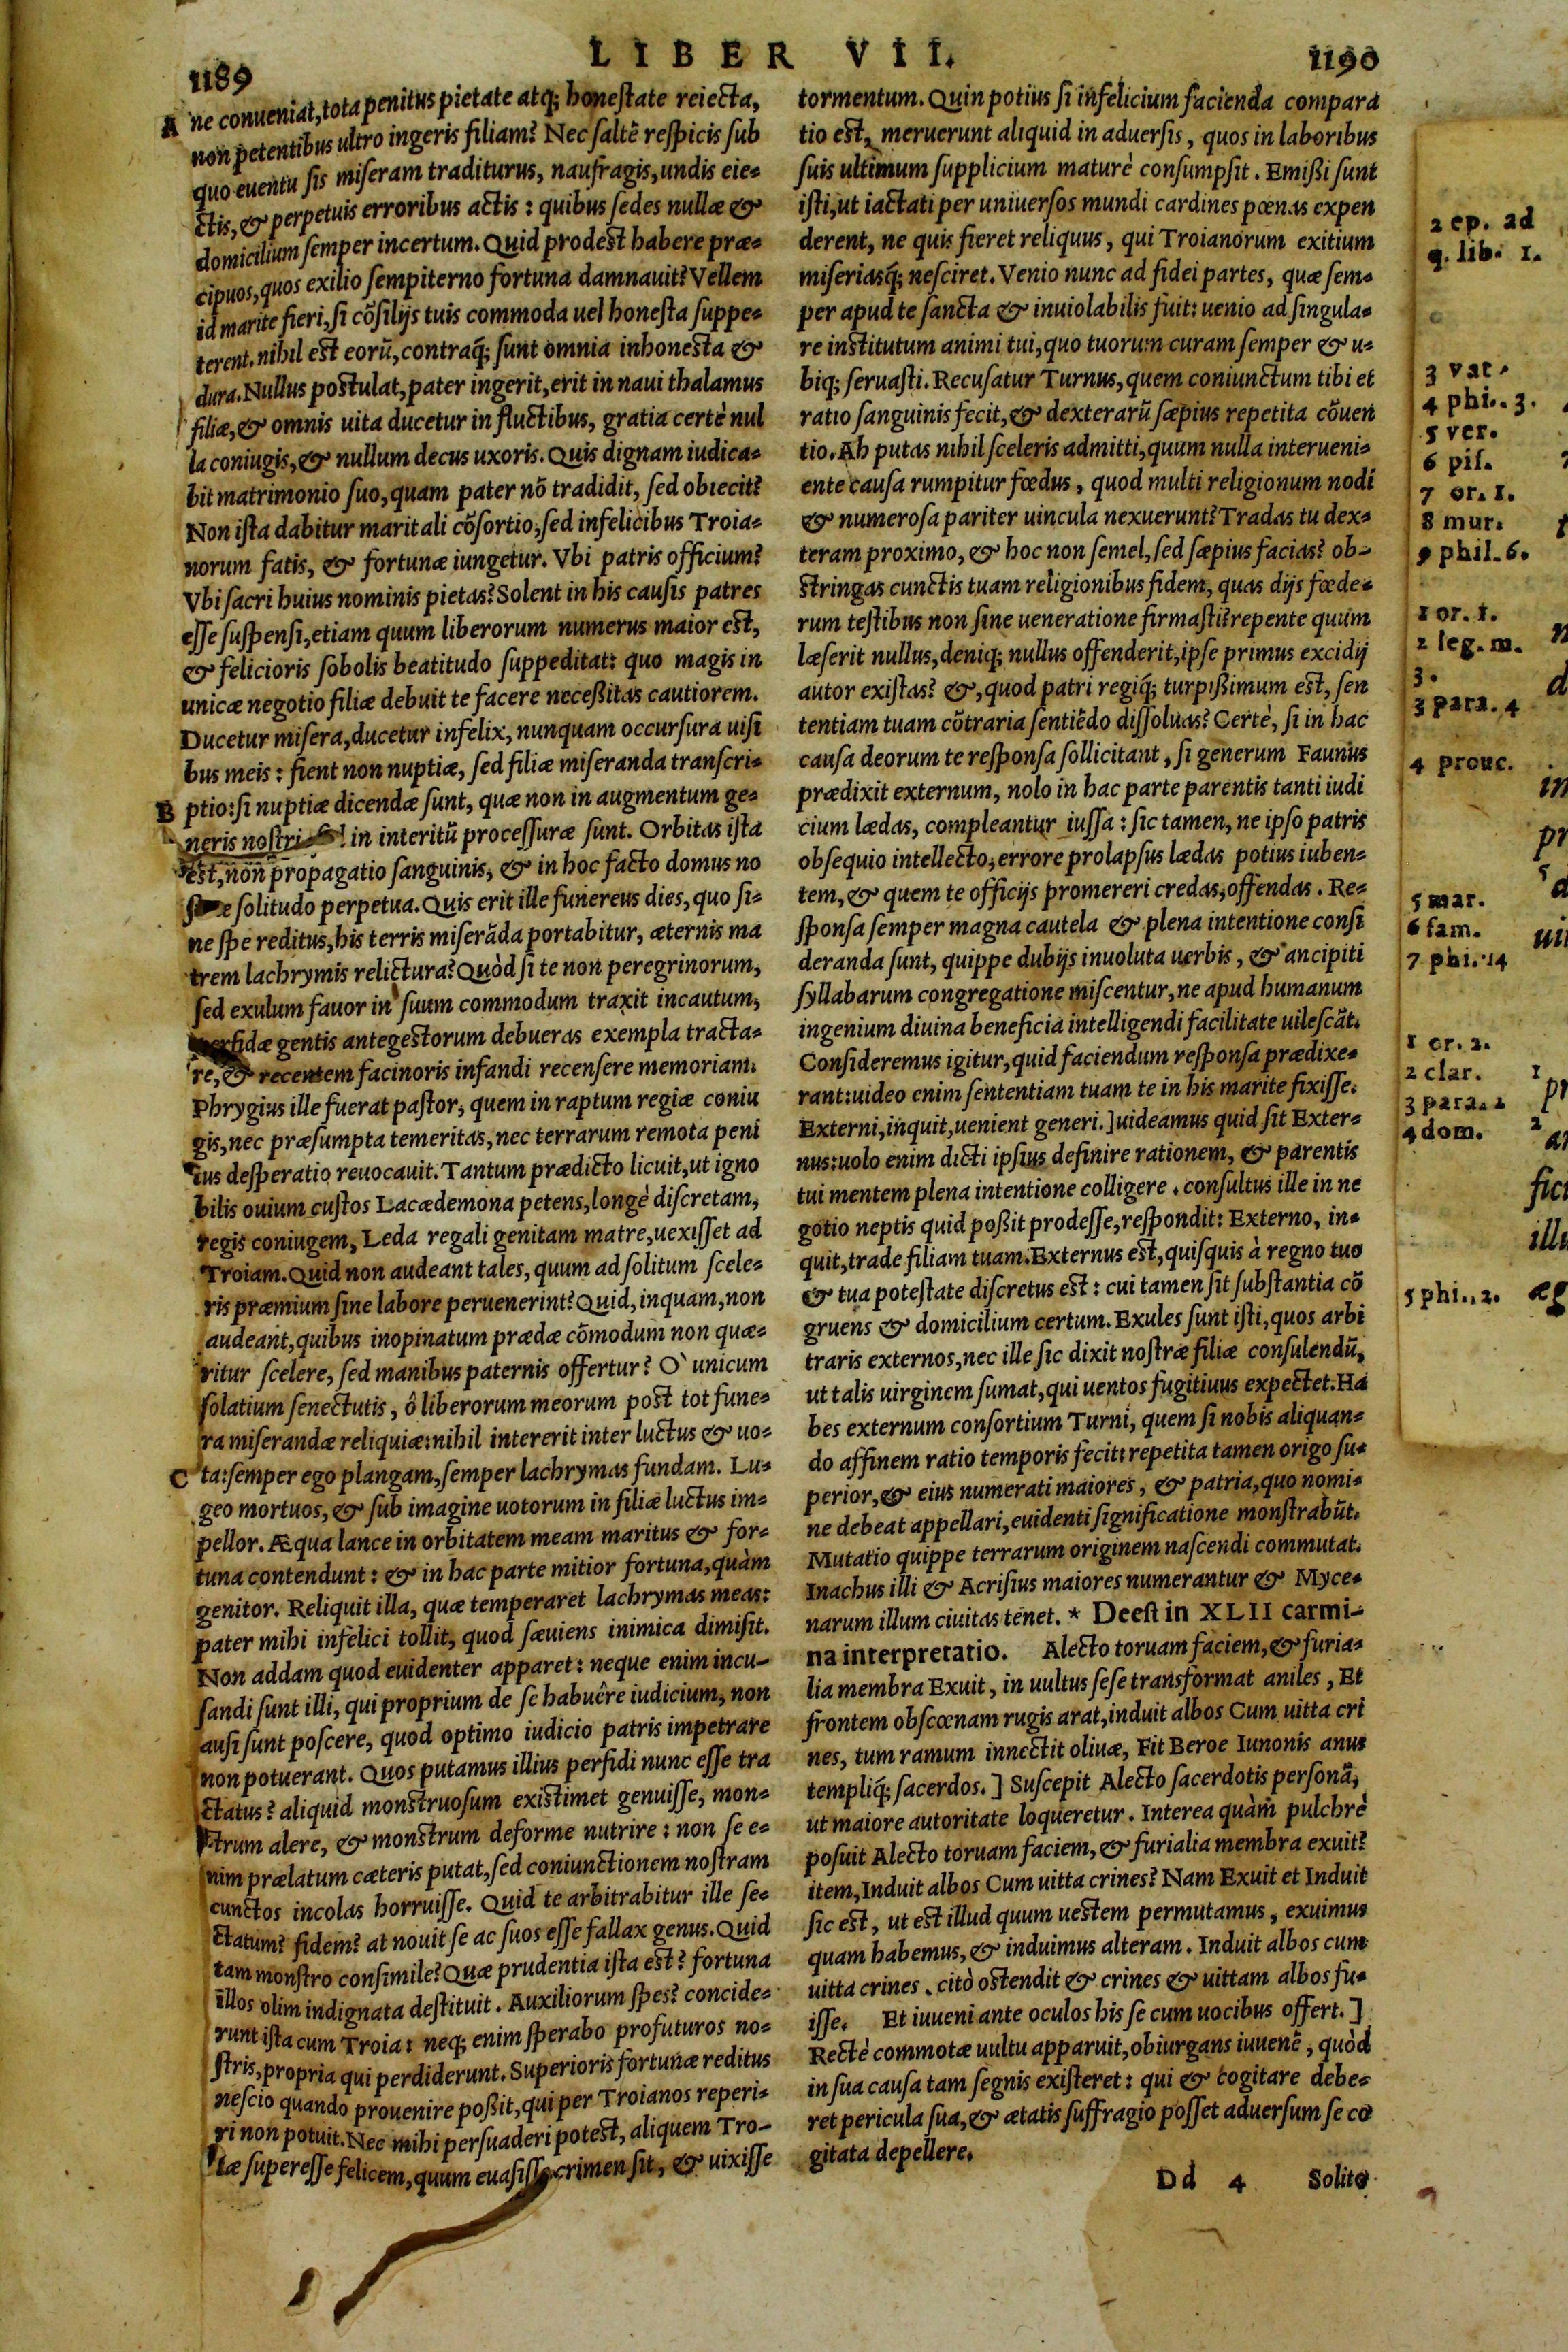 LIBER VII.
1189
1190
A ne conueniat, tota penitus pietate atq; honestate reiecta,
non petentibus ultro ingeris filiam? Nec saltẽ respicis sub
quo euentu sis miseram traditurus, naufragis, undis eie-
ctis, & perpetuis erroribus actis: quibus sedes nullæ &
domicilium semper incertum. Quid prodest habere præ-
cipuos, quos exilio sempiterno fortuna damnauit? Vellem
id marite fieri, si cõsilijs tuis commoda uel honesta suppe-
terent. nihil est eorũ, contraq́; sunt omnia inhonesta &
dura. Nullus postulat, pater ingerit, erit in naui thalamus
filiæ, & omnis uita ducetur in fluctibus, gratia certè nul
la coniugis, & nullum decus uxoris. Quis dignam iudica-
bit matrimonio suo, quam pater nõ tradidit, sed obiecit?
Non ista dabitur maritali cõsortio, sed infelicibus Troia-
norum fatis, & fortunæ iungetur. Vbi patris officium?
Vbi sacri huius nominis pietas? Solent in his causis patres
esse suspensi, etiam quum liberorum numerus maior est,
& felicioris sobolis beatitudo suppeditat: quo magis in
unicæ negotio filiæ debuit te facere necessitas cautiorem.
Ducetur misera, ducetur infelix, nunquam occursura uisi
bus meis: fient non nuptiæ, sed filiæ miseranda transcri-
B ptio: si nuptiæ dicendæ sunt, quæ non in augmentum ge-
neris nostri in interitũ processuræ sunt. Orbitas ista
est, non propagatio sanguinis, & in hoc facto domus no
solitudo perpetua. Quis erit ille funereus dies, quo si-
ne spe reditus, his terris miserãda portabitur, æternis ma
trem lachrymis relictura? Quòd si te non peregrinorum,
sed exulum fauor in suum commodum traxit incautum,
perfidæ gentis antegestorum debueras exempla tracta-
re, & recentem facinoris infandi recensere memoriam.
Phrygius ille fuerat pastor, quem in raptum regiæ coniu
gis, nec præsumpta temeritas, nec terrarum remota peni
tus desperatio reuocauit. Tantum prædicto licuit, ut igno
bilis ouium custos Lacædemona petens, longè discretam,
regis coniugem, Leda regali genitam matre, uexisset ad
Troiam. Quid non audeant tales, quum ad solitum scele-
ris præmium sine labore peruenerint? Quid, inquam, non
audeant, quibus inopinatum prædæ cõmodum non quæ-
ritur scelere, sed manibus paternis offertur? O` unicum
solatium senectutis, ô liberorum meorum post tot fune-
ra miserandæ reliquiæ: nihil intererit inter luctus & uo-
C ta: semper ego plangam, semper lachrymas fundam. Lu-
geo mortuos, & sub imagine uotorum in filiæ luctus im-
pellor. Æqua lance in orbitatem meam maritus & for-
tuna contendunt: & in hac parte mitior fortuna, quàm
genitor. Reliquit illa, quæ temperaret lachrymas meas:
pater mihi infelici tollit, quod sæuiens inimica dimisit.
Non addam quod euidenter apparet: neque enim incu-
sandi sunt illi, qui proprium de se habuêre iudicium, non
ausi sunt poscere, quod optimo iudicio patris impetrare
non potuerant. Quos putamus illius perfidi nunc esse tra
ctatus? aliquid monstruosum existimet genuisse, mon-
strum alere, & monstrum deforme nutrire: non se e-
nim prælatum cæteris putat, sed coniunctionem nostram
cunctos incolas horruisse. Quid te arbitrabitur ille se-
ctatum? fidem? at nouit se ac suos esse fallax genus. Quid
tam monstro consimile? Quæ prudentia ista est? fortuna
illos olim indignata destituit. Auxiliorum spes? concide-
runt ista cum Troia: neq; enim sperabo profuturos no-
stris, propria qui perdiderunt. Superioris fortunæ reditus
nescio quando prouenire possit, qui per Troianos reperi-
ri non potuit. Nec mihi persuaderi potest, aliquem Tro-
iæ superesse felicem, quum euasisse crimen sit, & uixisse
tormentum. Quin potius si infelicium facienda compara
tio est, meruerunt aliquid in aduersis, quos in laboribus
suis ultimum supplicium maturè consumpsit. Emissi sunt
isti, ut iactati per uniuersos mundi cardines pœnas expen
derent, ne quis fieret reliquus, qui Troianorum exitium
miseriasq́; nesciret. Venio nunc ad fidei partes, quæ sem-
per apud te sancta & inuiolabilis fuit: uenio ad singula-
re institutum animi tui, quo tuorum curam semper & u-
biq; seruasti. Recusatur Turnus, quem coniunctum tibi et
ratio sanguinis fecit, & dexterarũ sæpius repetita cõuen
tio. Ah putas nihil sceleris admitti, quum nulla interueni-
ente causa rumpitur fœdus, quod multi religionum nodi
& numerosa pariter uincula nexuerunt? Tradas tu dex-
teram proximo, & hoc non semel, sed sæpius facias? ob-
stringas cunctis tuam religionibus fidem, quas dijs fœde-
rum testibus non sine ueneratione firmasti? repente quum
læserit nullus, deniq; nullus offenderit, ipse primus excidij
autor existas? &, quod patri regiq́; turpissimum est, sen
tentiam tuam cõtraria sentiẽdo dissoluas? Certè, si in hac
causa deorum te responsa sollicitant, si generum Faunus
prædixit externum, nolo in hac parte parentis tanti iudi
cium lædas, compleantur iussa: sic tamen, ne ipso patris
obsequio intellecto, errore prolapsus lædas potius iuben-
tem, & quem te officijs promereri credas, offendas. Re-
sponsa semper magna cautela & plena intentione consi
deranda sunt, quippe dubijs inuoluta uerbis, & ancipiti
syllabarum congregatione miscentur, ne apud humanum
ingenium diuina beneficia intelligendi facilitate uilescãt.
Consideremus igitur, quid faciendum responsa prædixe-
rant: uideo enim sententiam tuam te in his marite fixisse.
Externi, inquit, uenient generi.] uideamus quid sit Exter-
nus: uolo enim dicti ipsius definire rationem, & parentis
tui mentem plena intentione colligere. consultus ille in ne
gotio neptis quid possit prodesse, respondit: Externo, in-
quit, trade filiam tuam. Externus est, quisquis à regno tuo
& tua potestate discretus est: cui tamen sit substantia cõ
gruens & domicilium certum. Exules sunt isti, quos arbi
traris externos, nec ille sic dixit nostræ filiæ consulendũ,
ut talis uirginem sumat, qui uentos fugitiuus expectet. Ha
bes externum consortium Turni, quem si nobis aliquan-
do affinem ratio temporis fecit: repetita tamen origo su-
perior, & eius numerati maiores, & patria, quo nomi-
ne debeat appellari, euidenti significatione monstrabũt.
Mutatio quippe terrarum originem nascendi commutat.
Inachus illi & Acrisius maiores numerantur & Myce-
narum illum ciuitas tenet. * Deest in XLII carmi-
na interpretatio. Alecto toruam faciem, & furia-
lia membra Exuit, in uultus sese transformat aniles, Et
frontem obscœnam rugis arat, induit albos Cum uitta cri
nes, tum ramum innectit oliuæ, Fit Beroe Iunonis anus
templiq́; sacerdos.] Suscepit Alecto sacerdotis personã,
ut maiore autoritate loqueretur. Interea quàm pulchrè
posuit Alecto toruam faciem, & furialia membra exuit?
item, Induit albos Cum uitta crines? Nam Exuit et Induit
sic est, ut est illud quum uestem permutamus, exuimus
quam habemus, & induimus alteram. Induit albos cum
uitta crines. citò ostendit & crines & uittam albos fu-
isse. Et iuueni ante oculos his se cum uocibus offert.]
Rectè commotæ uultu apparuit, obiurgans iuuenẽ, quòd
in sua causa tam segnis existeret: qui & cogitare debe-
ret pericula sua, & ætatis suffragio posset aduersum se co
gitata depellere.
Dd 4 Solito
2 ep. ad
q. lib. 1.
3 vat.
4 phi. 3.
5 ver.
6 pis.
7 or. 1.
8 mur.
9 phil. 6.
1 or. 1.
2 leg. m.
3.
3 para. 4
4 prouc.
5 mar.
6 fam.
7 phi. 14
1 or. 2.
2 clar.
3 para. 1
4 dom.
5 phi. 2.